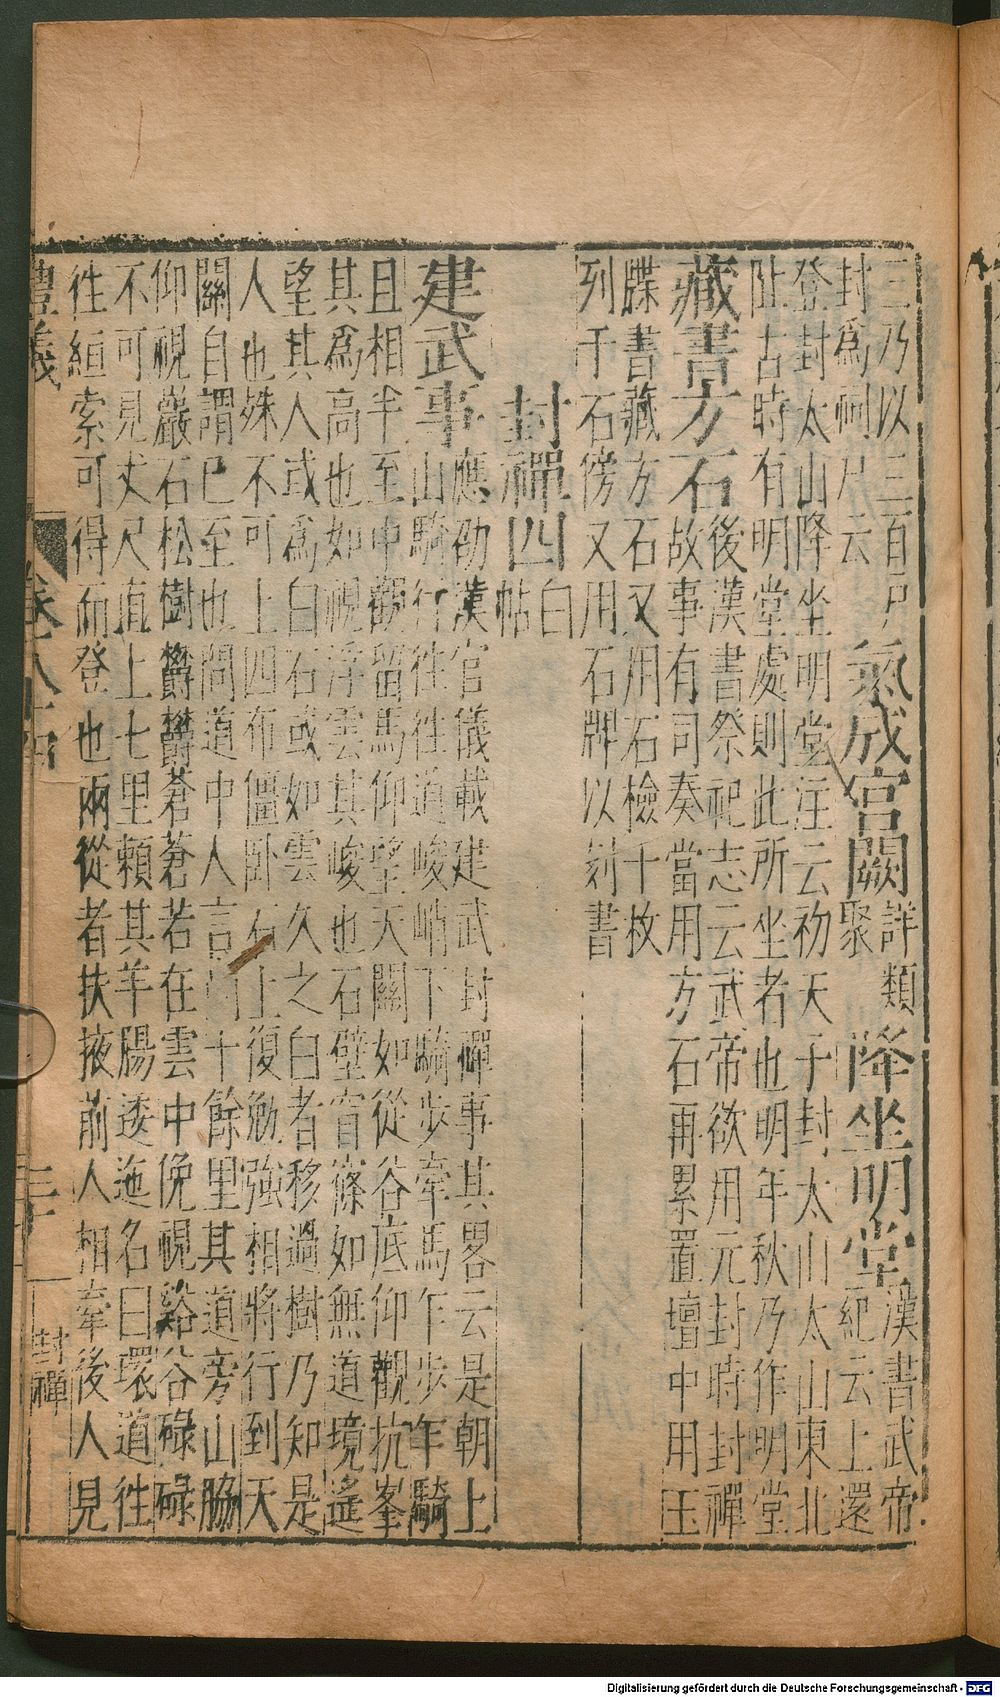 三乃以三百戶
封為祠
氣成宮闕
詳類
聚
降坐明堂
漢書武帝
紀云上還
登封太山降坐明堂注云初天子封太山太山東北
阯古時有明堂處則此所坐者也明年秋乃作明堂
藏書方石
後漢書祭祀志云武帝欲用元封時封禪
故事有司奏當用方石再累置壇中用玉
牒書藏方石又用石檢十枚
列于石傍又用石牌以刻書
封禪四
白
帖
建武事
應劭漢官儀載建武封禪事其畧云是朝上
山騎行往往道峻峭下騎步牽馬乍步乍騎
且相半至中觀留馬仰望天關如從谷底仰觀抗峯
其為高也如視浮雲其峻也石壁窅窱如無道境遙
望其人或為白石或如雲久之白者移過樹乃知是
人也殊不可上四布僵卧石上復勉強相將行到天
關自謂已至也問道中人言尚十餘里其道旁山脇
仰視巖石松樹欝欝蒼蒼若在雲中俛視谿谷碌碌
不可見丈尺直上七里賴其羊腸逶迤名曰環道往
往絙索可得而登也兩從者扶掖前人相牽後人見
禮義
封禪
Digitalisierung gefördert durch die Deutsche Forschungsgemeinschaft - DFG